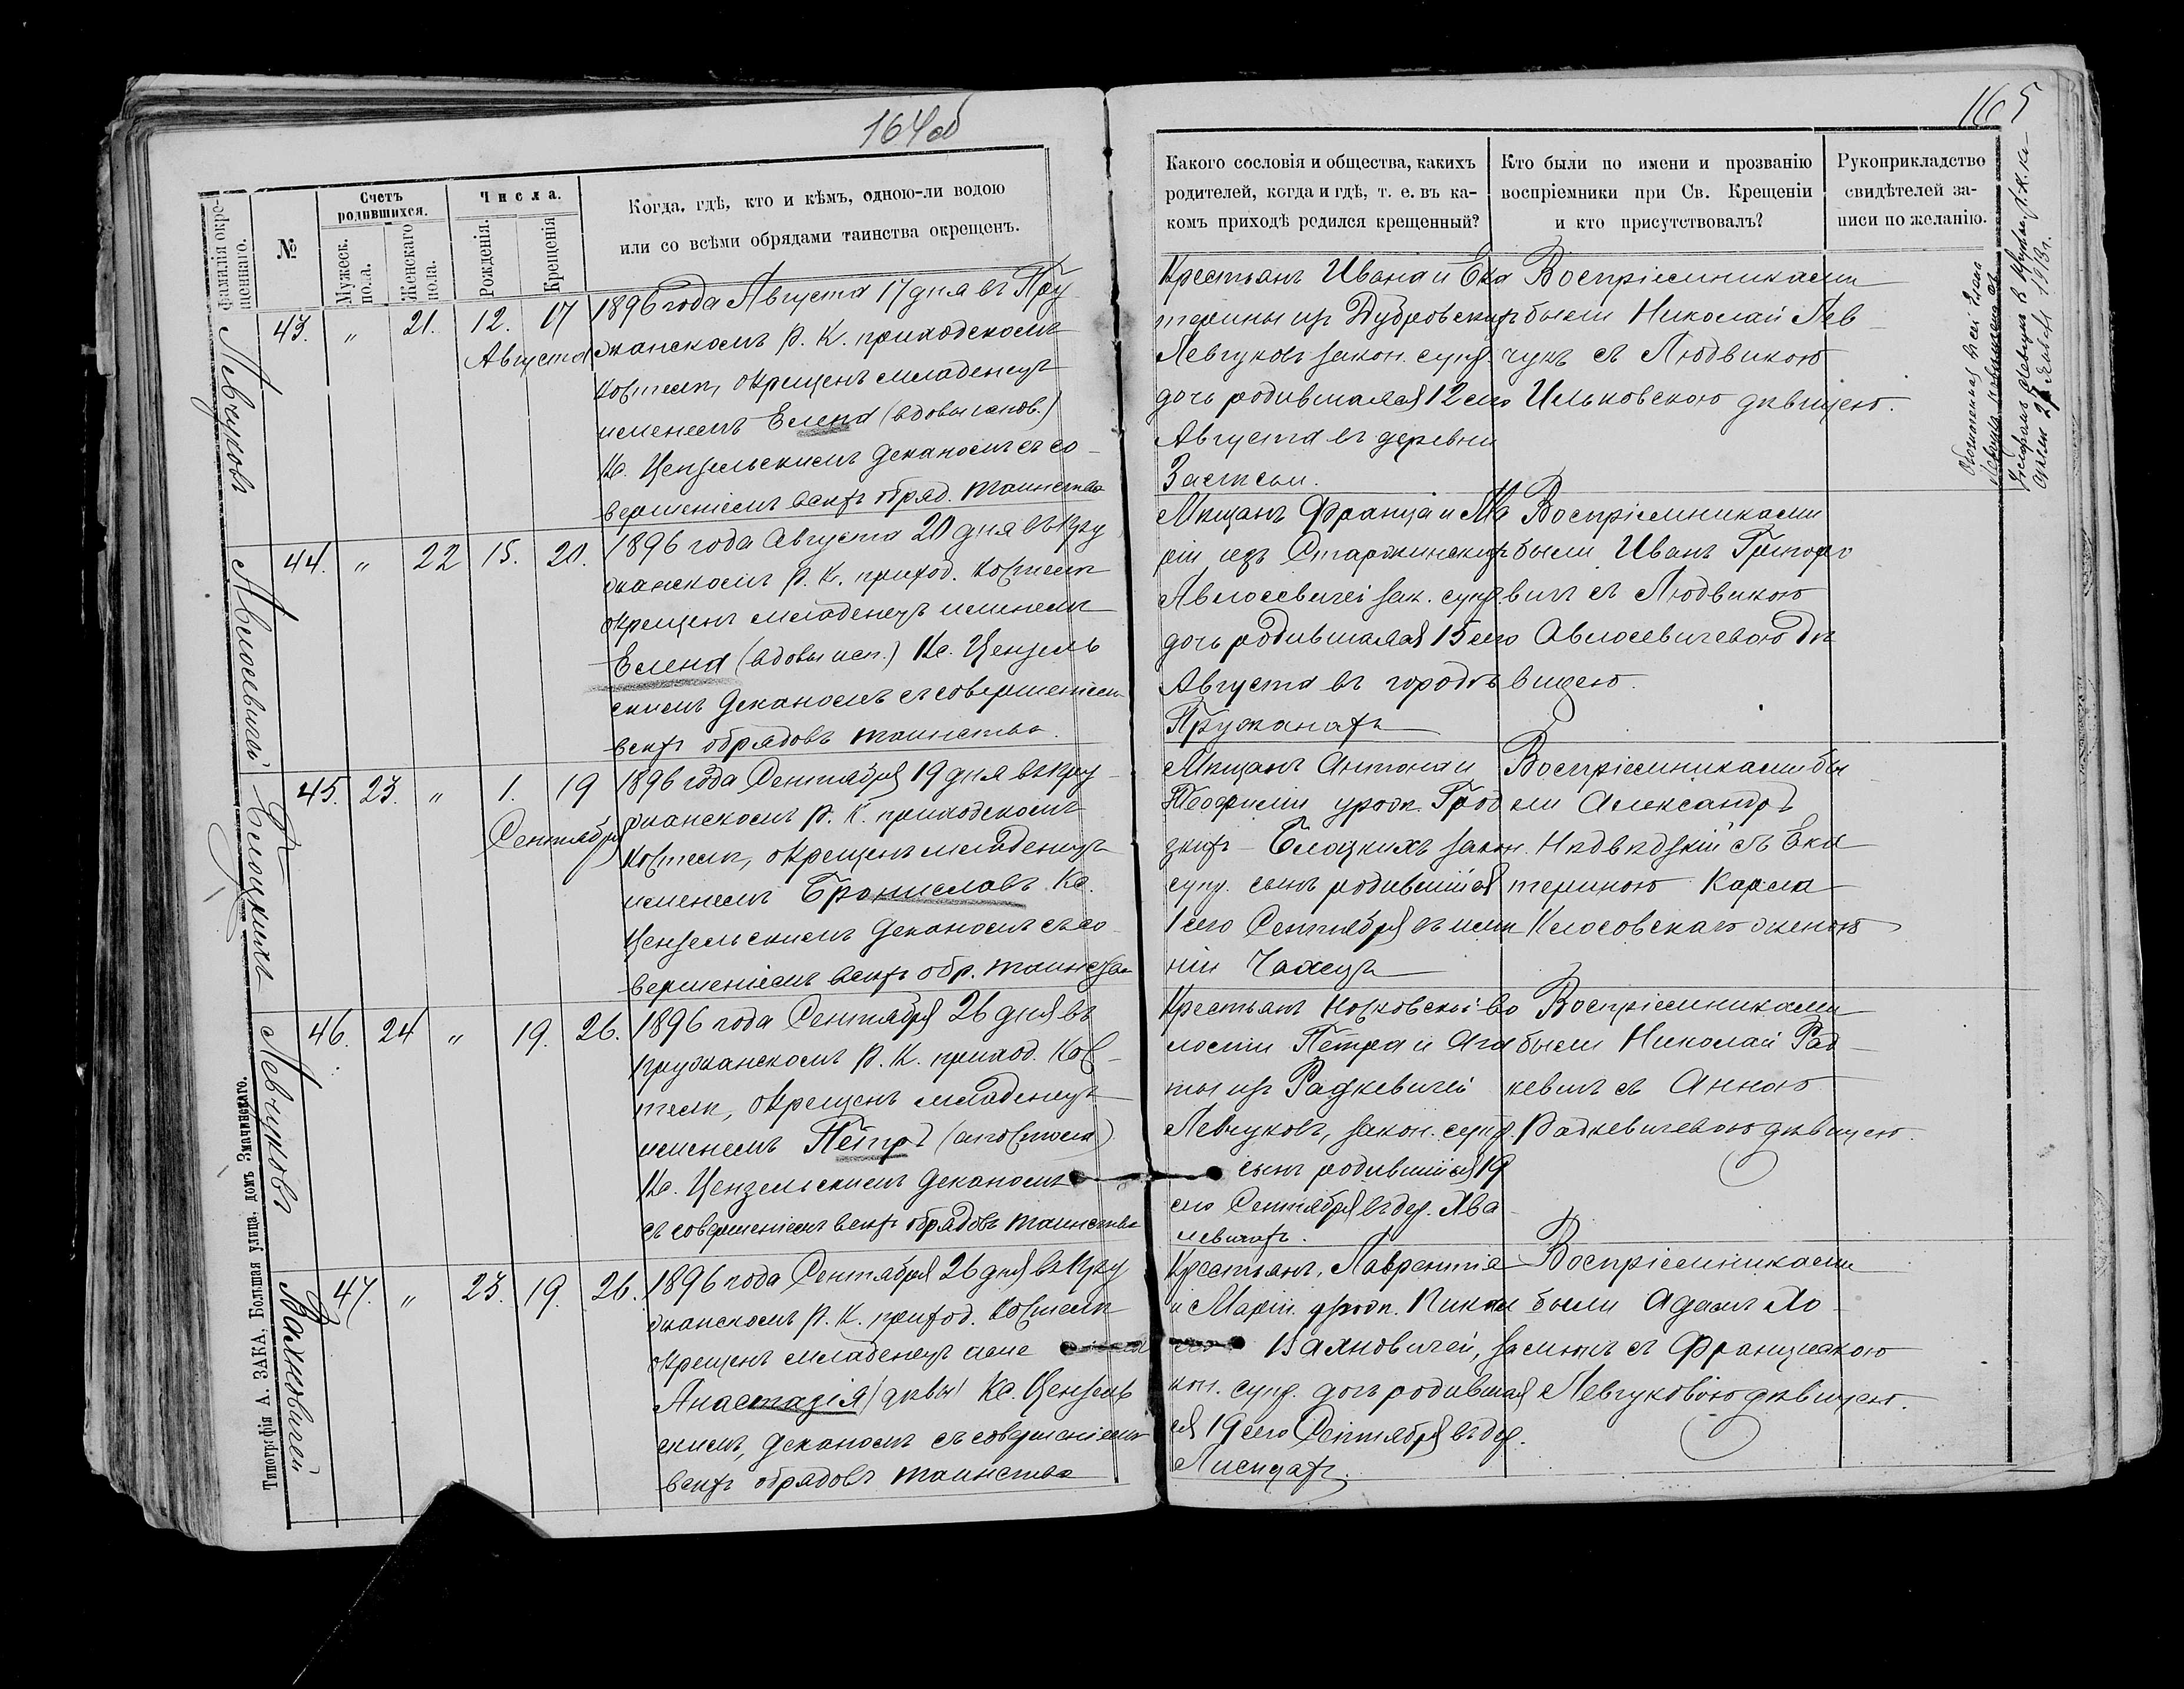 164об
Фамилія окре-
щеннаго.
№
Счетъ
родившихся.
Мужеск.
пола.
Женскаго
пола.
Числа.
Рожденія.
Крещенія
Когда, гдѣ, кто и кѣмъ, одною-ли водою
или со всѣми обрядами таинства окрещенъ.
Левчуковъ
43. " 21. 12. 17
Августа
1896 года Августа 17 дня въ Пру
жанскомъ Р. К. приходскомъ
костелѣ, окрещенъ младенецъ
именемъ Елена (вдовы испов.)
Кс. Цензельскимъ деканомъ съ со-
вершеніемъ всѣхъ обряд. таинства
Авлосевичей
44. " 22 15. 20.
1896 года Августа 20 дня въ Пру
жанскомъ Р. К. приход. костелѣ
окрещенъ младенецъ именемъ
Елена (вдовы исп.) Кс. Цензель
скимъ деканомъ съ совершеніем
всѣхъ обрядовъ таинства.
Белоцкихъ
45. 23. " 1. 19
Сентября
1896 года Сентября 19 дня въ Пру-
жанскомъ Р. К. приходскомъ
костелѣ, окрещенъ младенецъ
именемъ Брониславъ Кс.
Цензельскимъ деканомъ съ со
вершеніемъ всѣхъ обр. таинства
Левчуковъ
46. 24 " 19. 26.
1896 года Сентября 26 дня въ
Пружанскомъ Р. К. приход. кос-
телѣ, окрещенъ младенецъ
именемъ Петръ (апостола)
Кс. Цензельскимъ деканомъ
съ совершеніемъ всѣхъ обрядовъ таинства
Вахновичей
47. " 23. 19. 26.
1896 года Сентября 26 дня въ Пру
жанскомъ Р. К. приход. костелѣ
окрещенъ младенецъ име
Анастазія (дѣвы) Кс. Цензель
скимъ, деканомъ съ совершеніемъ
всѣхъ обрядовъ таинства
Типографія А. ЗАКА, Большая улица, домъ Змачинскаго.
165
Какого сословія и общества, какихъ
родителей, когда и гдѣ, т. е. въ ка-
комъ приходѣ родился крещенный?
Кто были по имени и прозванію
воспріемники при Св. Крещеніи
и кто присутствовалъ?
Рукоприкладство
свидѣтелей за-
писи по желанію.
Крестьянъ Ивана и Ека
терины изъ Дубровскихъ
Левчуковъ закон. супр.
дочь родившаяся 12 сего
Августа въ деревни
Застсьи.
Воспріемниками
были Николай Лев-
чукъ съ Людвикою
Ильковскою дѣвицею.
1913 г.
Мѣщанъ Франца и Ма
ріи изъ Старжинскихъ
Авлосевичей зак. супр.
дочь родившаяся 15 сего
Августа въ городѣ
Пружанахъ
Воспріемниками
были Иванъ Григоро
вичъ съ Людвикою
Авлосевичевою Дѣ
вицею.
Мѣщанъ Антона и
Теофиліи урожд. Грод
зкихъ - Белоцкихъ закон.
супр. сынъ родившійся
1 сего Сентября въ имѣ
ніи Чахецъ
Воспріемниками бы
ли Александръ
Нѣдвѣдзкій съ Ека
териною Карола
Клосовскаго женою
Крестьянъ Носковской во
лости Петра и Ага
ты изъ Радкевичей
Левчуковъ, закон. супр.
сынъ родившійся 19
сего Сентября въ дер. Ава
левичахъ.
Воспріемниками
были Николай Рад-
кевичъ съ Анною
Радкевичевою дѣвицею.
Крестьянъ, Лаврентія
и Маріи урожд.
Вахновичей, за
кон. супр. дочь родивша
ся 19 сего Сентября въ дер.
Лисицахъ.
Воспріемниками
были Адамъ
съ Францишкою
Левчуковою дѣвицею.